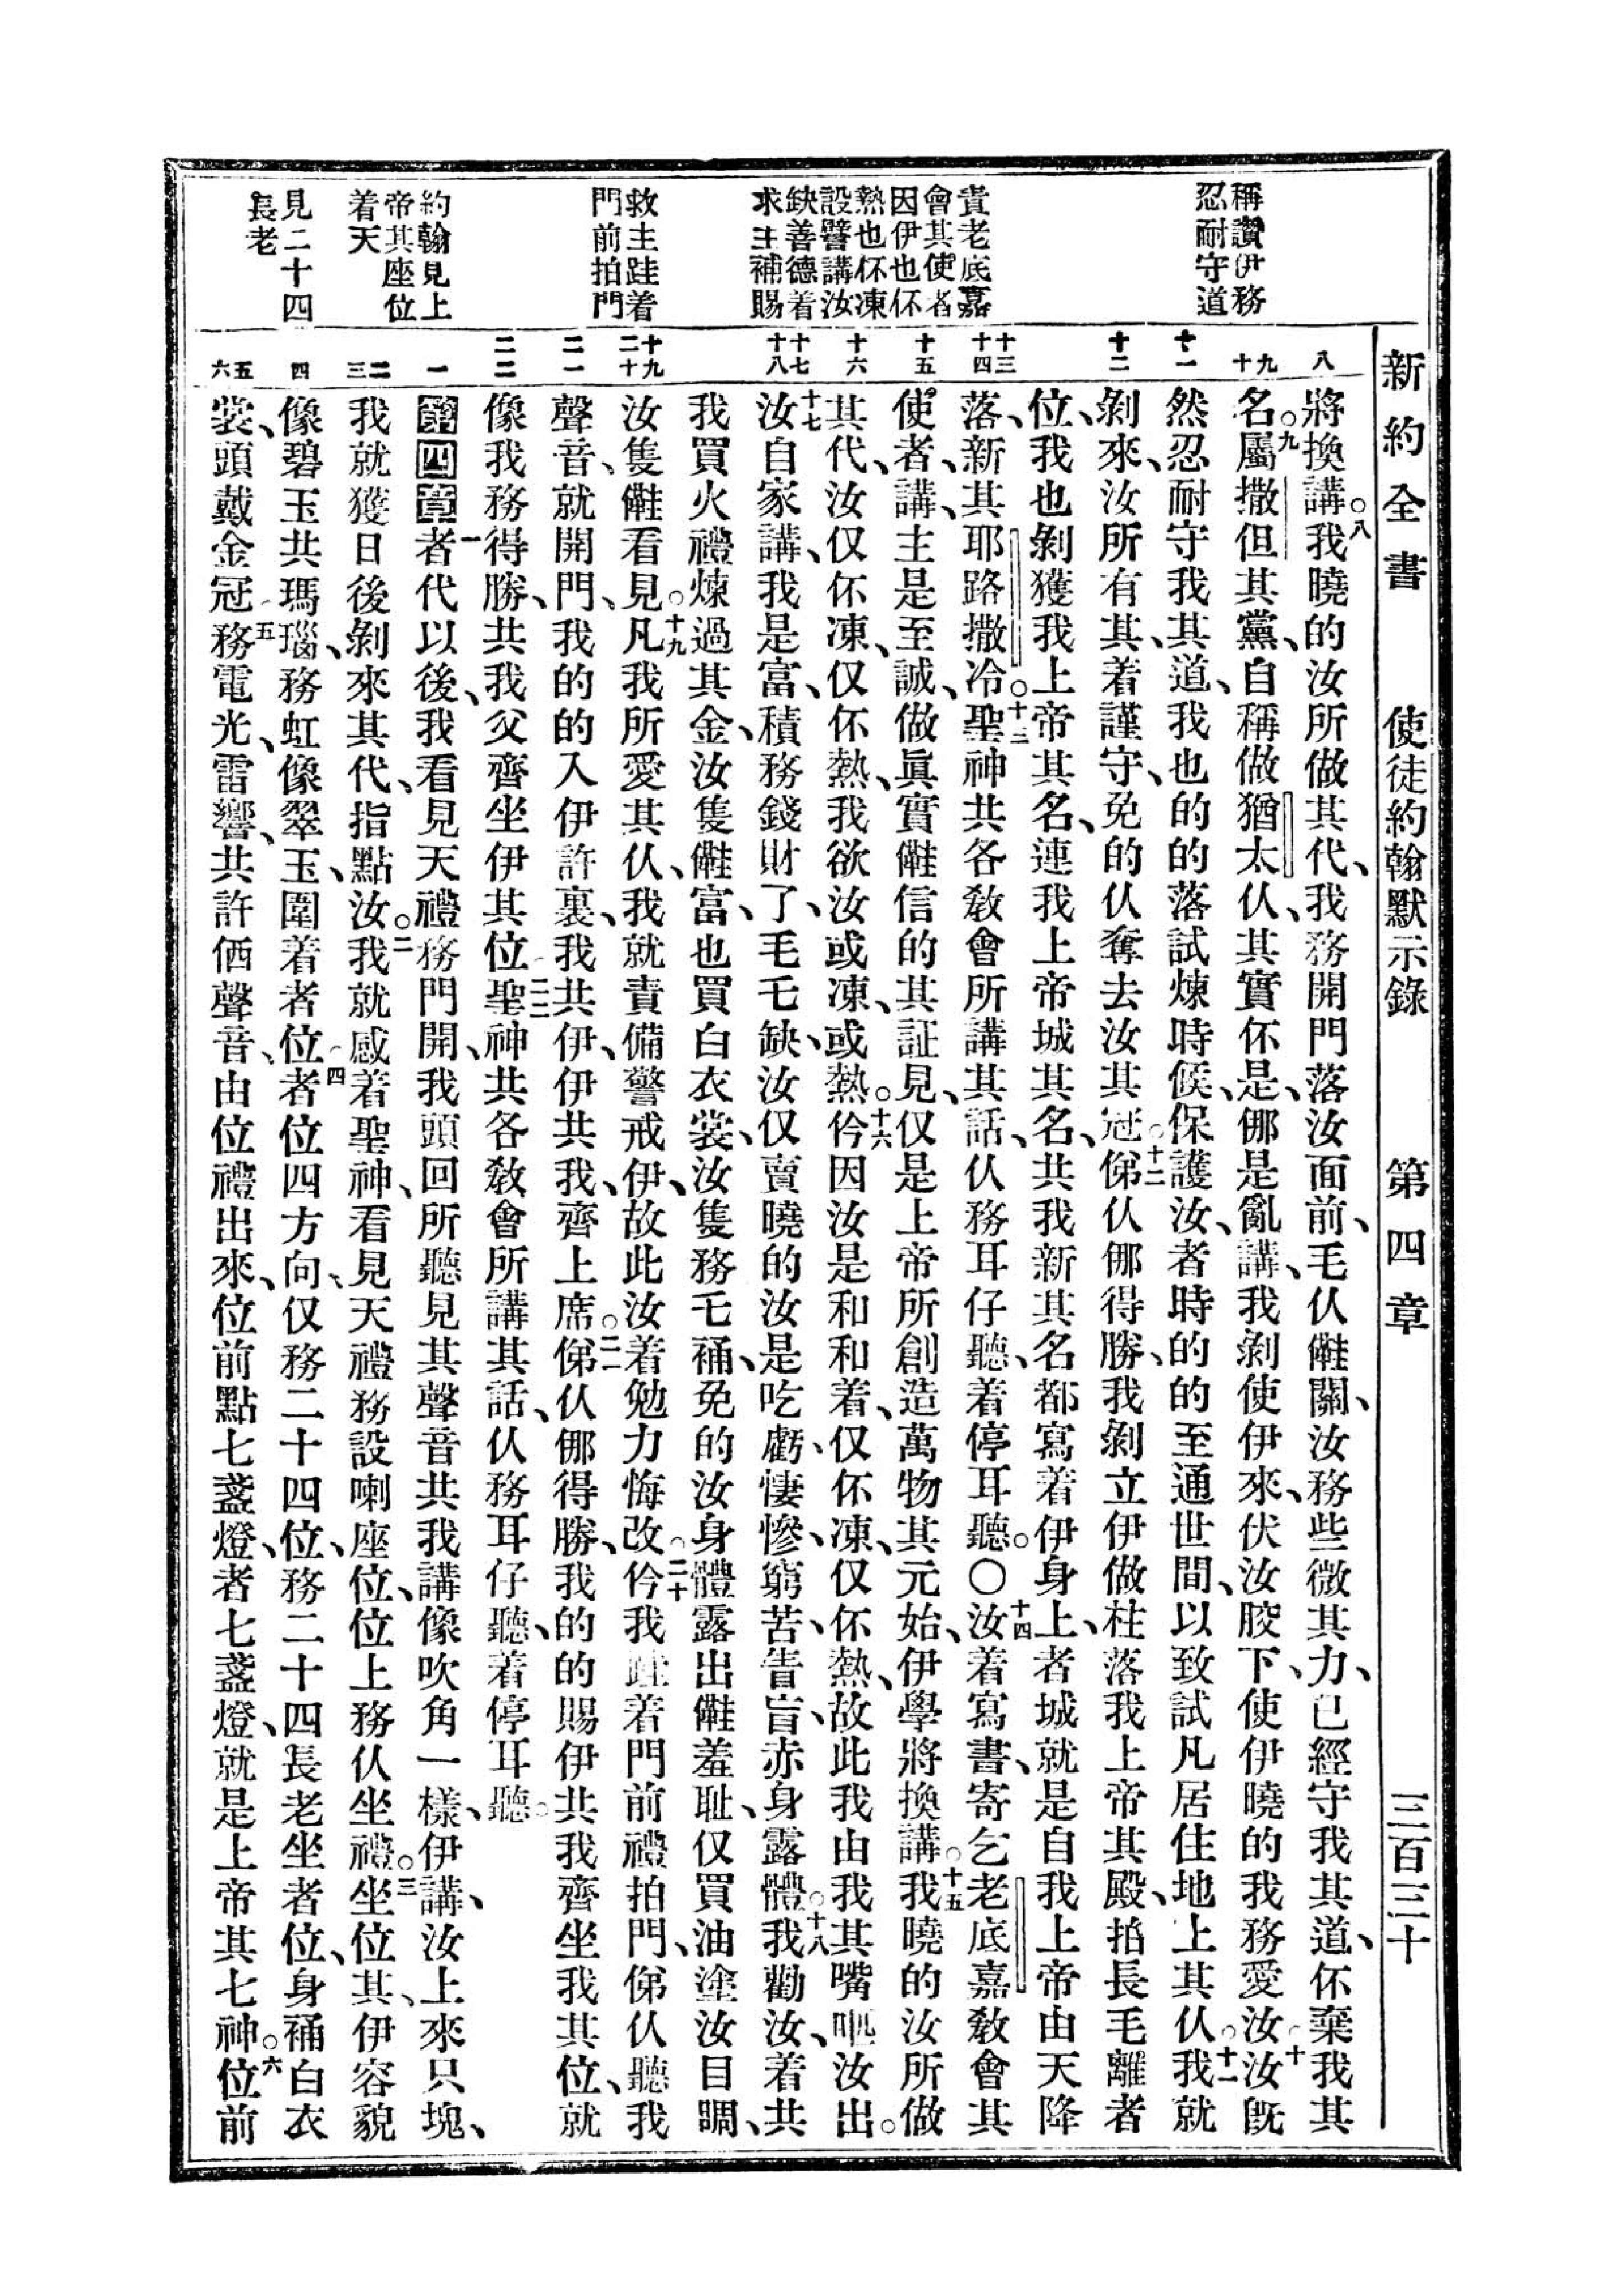 新約全書　使徒約翰默示錄　第四章　三百三十
稱讚伊務
忍耐守道
責老底嘉
會其使者
因伊也伓
熱也伓凍
設譬講汝
缺善德着
求主補賜
救主跬着
門前拍門
約翰見上
帝其座位
着天
見二十四
長老
八
九 十
十一
十二
十三 十四
十五
十六
十七 十八
十九 二十
二一
二二
一
二 三
四
五 六
將換講。八我曉的汝所做其代、我務開門落汝面前、毛仈𣍐關、汝務些微其力、已經守我其道、伓棄我其
名。九屬撒但其黨、自稱做猶太仈、其實伓是、㑚是亂講、我剝使伊來、伏汝骹下、使伊曉的我務愛汝。十汝旣
然忍耐守我其道、我也的的落試煉時候、保護汝、者時的的至通世間、以致試凡居住地上其仈。十一我就
剝來、汝所有其、着謹守、免的仈奪去汝其冠。十二俤仈㑚得勝、我剝立伊做柱落我上帝其殿、拍長毛離者
位、我也剝獲我上帝其名、連我上帝城其名、共我新其名都寫着伊身上、者城就是自我上帝由天降
落、新其耶路撒冷。十三聖神共各敎會所講其話、仈務耳仔聽、着停耳聽。〇十四汝着寫書、寄乞老底嘉敎會其
使者、講、主是至誠、做眞實𣍐信的其証見、仅是上帝所創造萬物其元始、伊學將換講。十五我曉的汝所做
其代、汝仅伓凍、仅伓熱、我欲汝或凍、或熱。十六仱因汝是和和着、仅伓凍、仅伓熱、故此我由我其嘴𠯗汝出。
十七汝自家講、我是富、積務錢財了、毛乇缺、汝仅賣曉的汝是吃虧悽慘、窮苦、眚盲、赤身露體。十八我勸汝、着共
我買火禮煉過其金、汝隻𣍐富、也買白衣裳、汝隻務乇𧙕、免的汝身體露出𣍐羞耻、仅買油塗汝目睭、
汝隻𣍐看見。十九凡我所愛其仈、我就責備警戒伊、故此汝着勉力悔改。二十仱我跬着門前禮拍門、俤仈聽我
聲音、就開門、我的的入伊許裏、我共伊、伊共我、齊上席。二一俤仈㑚得勝、我的的賜伊共我齊坐我其位、就
像我務得勝、共我父齊坐伊其位。二二聖神共各敎會所講其話、仈務耳仔聽、着停耳聽。
第四章一者代以後、我看見天禮務門開、我頭回所聽見其聲音共我講、像吹角一樣、伊講、汝上來只塊、
我就獲日後剝來其代、指點汝。二我就感着聖神、看見天禮務設喇座位、位上務仈坐禮。三坐位其、伊容貌
像碧玉共瑪瑙、務虹像翠玉、圍着者位。四者位四方向、仅務二十四位、務二十四長老坐者位、身𧙕白衣
裳、頭戴金冠。五務電光、雷響、共許価聲音、由位禮出來、位前點七盞燈、者七盞燈、就是上帝其七神。六位前